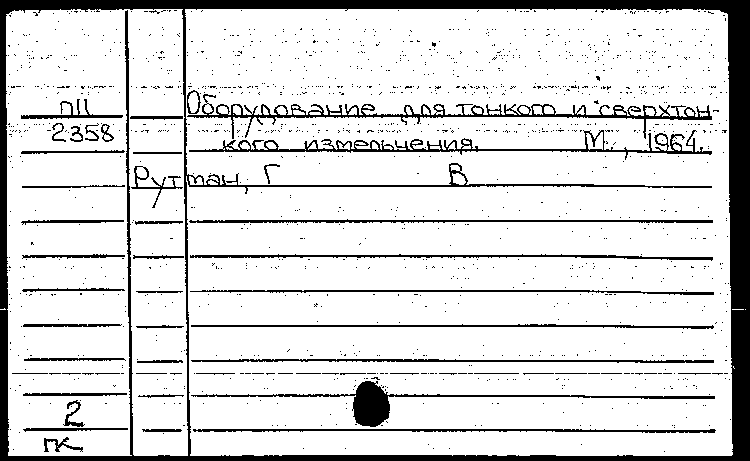 ПII Оборудование для тонкого и сверхтон-
2358 кого измельчения. М., 1964.
Рутман, Г В
2
ПК